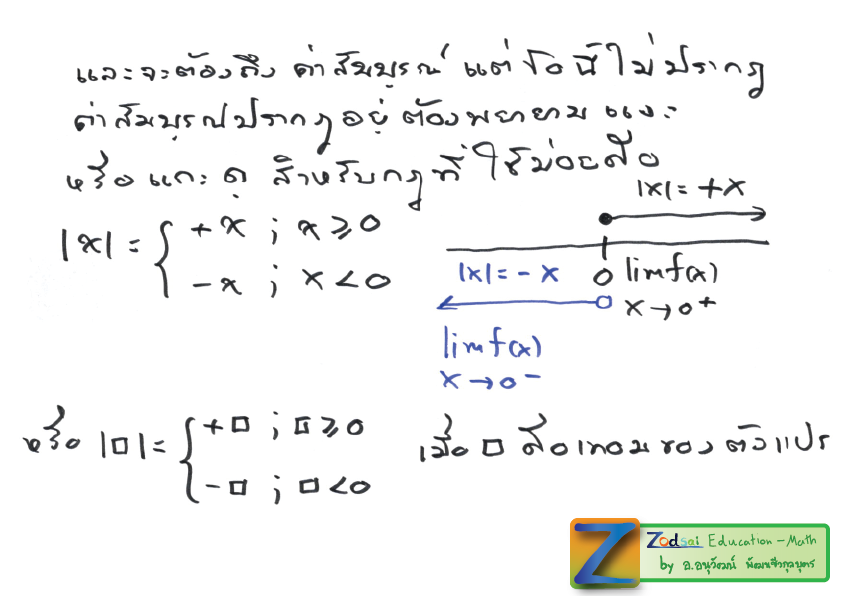 และจะต้องถึง ค่าสัมบูรณ์ แต่ข้อนี้ไม่ปรากฏ
ค่าสัมบูรณ์ปรากฏอยู่ ต้องพยายาม และ
หรือ แกะ ดู สำหรับกฎที่ใช้บ่อยคือ
|x| = { +x ; x ≥ 0
-x ; x < 0
|x| = +x
|x| = - x
0
lim f(x)
x → 0⁺
lim f(x)
x → 0⁻
หรือ |□| = { +□ ; □ ≥ 0
-□ ; □ < 0
เมื่อ □ คือเทอมของตัวแปร
Z Zodsai Education - Math
by อ.อนุวัฒน์ พัฒนชีวกุลบุตร